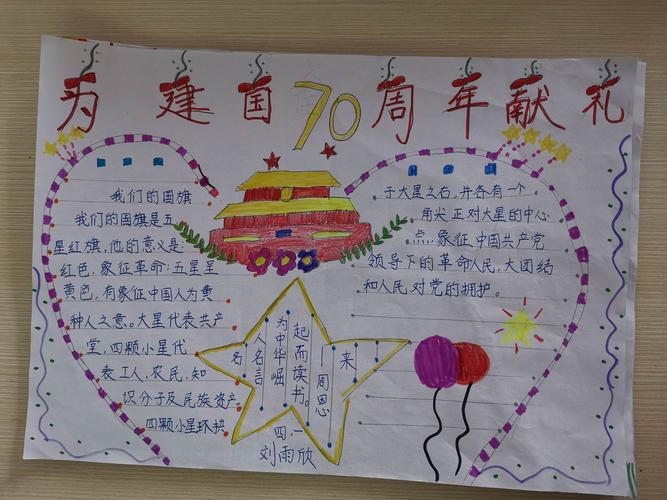 为建国70周年献礼
我们的国旗
我们的国旗是五
星红旗,他的意义是:
红色,象征革命;五星呈
黄色,有象征中国人为黄
种人之意。大星代表共产
党,四颗小星代
表工人、农民、知
识分子及民族资产
四颗小星环拱
于大星之右,并各有一个
角尖正对大星的中心
点。象征中国共产党
领导下的革命人民,大团结
和人民对党的拥护。
名人名言
为中华崛
起而读书。
——周恩
来
四.一
刘雨欣